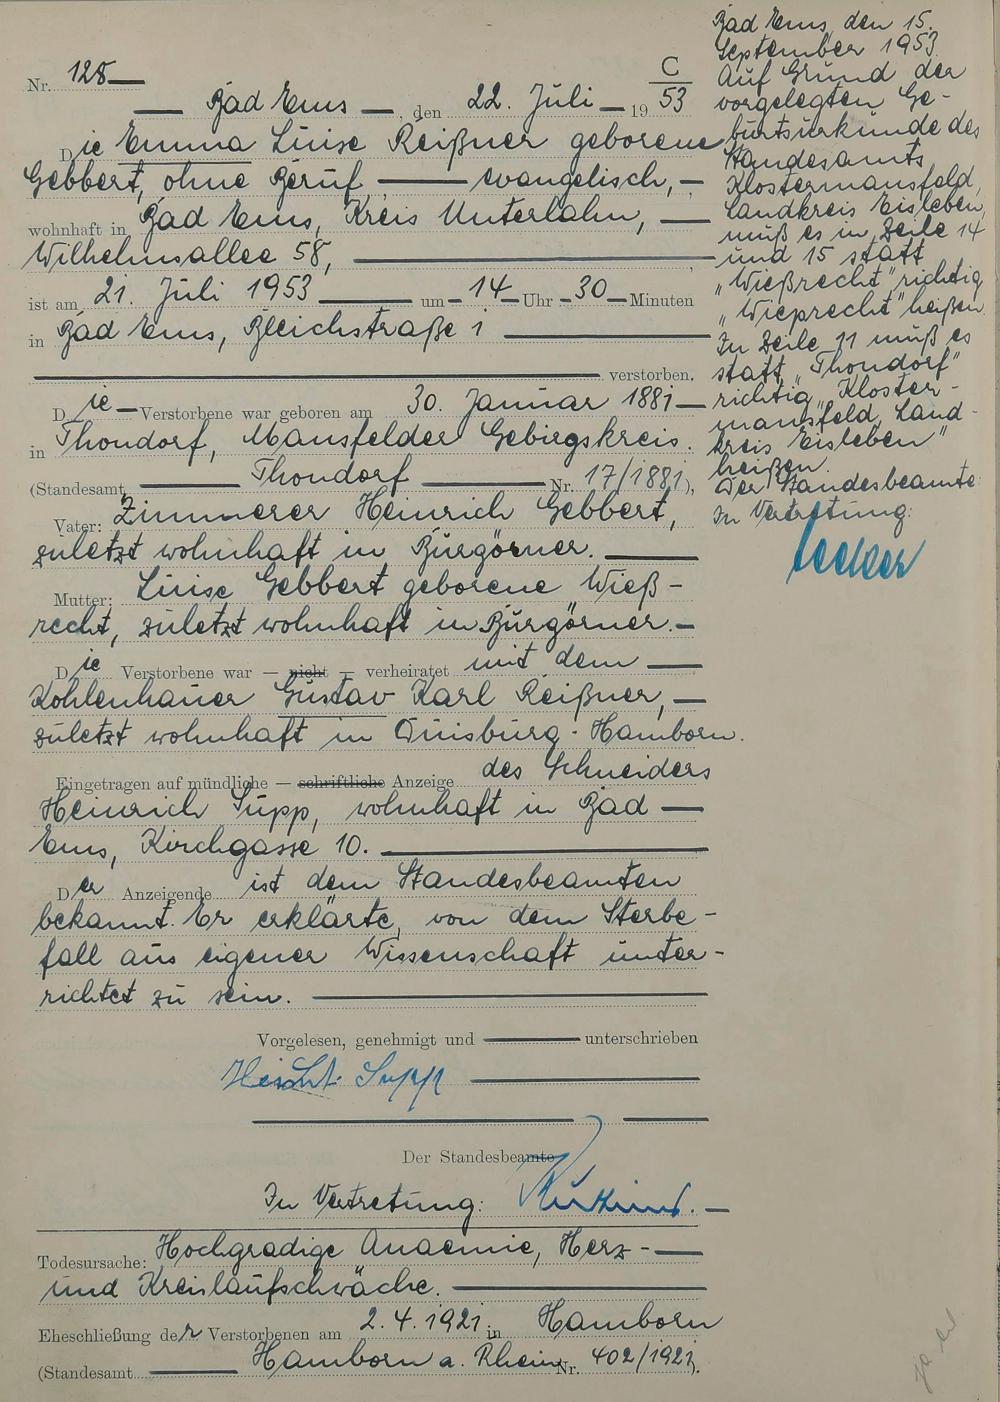 Nr. 128
C
Bad Ems, den 22. Juli 1953
Die Emma Luise Reißner geborene
Gebbert, ohne Beruf evangelisch,
wohnhaft in Bad Ems, Kreis Unterlahn,
Wilhelmsallee 58,
ist am 21. Juli 1953 um 14 Uhr 30 Minuten
in Bad Ems, Bleichstraße 1
verstorben.
Die Verstorbene war geboren am 30. Januar 1881
in Thondorf, Mansfelder Gebirgskreis.
(Standesamt Thondorf Nr. 17/1881),
Vater: Zimmerer Heinrich Gebbert,
zuletzt wohnhaft in Burgörner.
Mutter: Luise Gebbert geborene Wieß-
recht, zuletzt wohnhaft in Burgörner.
Die Verstorbene war – nicht – verheiratet mit dem
Kohlenhauer Gustav Karl Reißner,
zuletzt wohnhaft in Duisburg-Hamborn.
Eingetragen auf mündliche – schriftliche Anzeige des Schneiders
Heinrich Supp, wohnhaft in Bad
Ems, Kirchgasse 10.
Der Anzeigende ist dem Standesbeamten
bekannt. Er erklärte, von dem Sterbe-
fall aus eigener Wissenschaft unter-
richtet zu sein.
Vorgelesen, genehmigt und unterschrieben
Supp
Der Standesbeamte
In Vertretung:
Todesursache: Hochgradige Anaemie, Herz-
und Kreislaufschwäche.
Eheschließung der Verstorbenen am 2.4.1921 in Hamborn
(Standesamt Hamborn a. Rhein Nr. 402/1921).
Bad Ems, den 15.
September 1953.
Auf Grund der
vorgelegten Ge-
burtsurkunde des
Standesamts
Klostermansfeld,
Landkreis Eisleben,
muß es in Zeile 14
und 15 statt
„Wießrecht" richtig
„Wieprecht" heißen.
In Zeile 11 muß es
statt „Thondorf"
richtig „Kloster-
mansfeld, Land-
kreis Eisleben"
heißen.
Der Standesbeamte
In Vertretung: